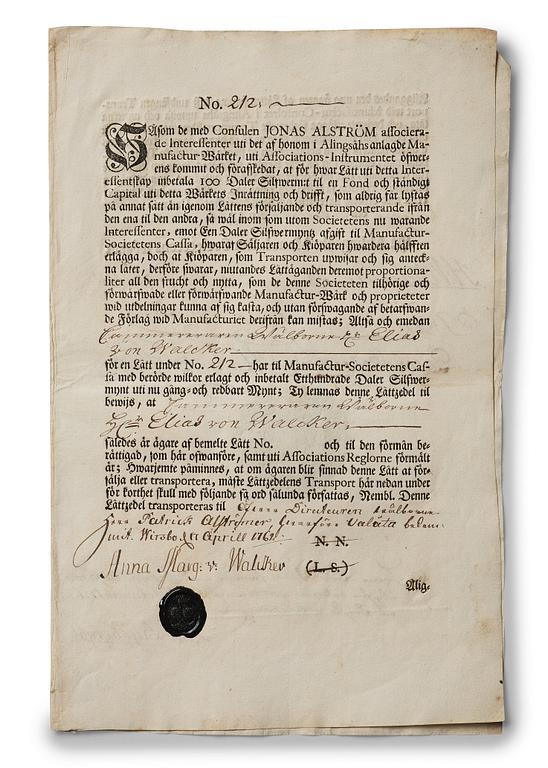 No. 212.
Såsom de med Consulen JONAS ALSTRÖM associera-
de Interessenter uti det af honom i Alingsåhs anlagde Ma-
nufactur-Wärket, uti Associations-Instrumentet öfwer-
ens kommit och förafskedat, at för hwar Lått uti detta Inter-
essentskap inbetala 100 Daler Silfwermt til en Fond och ständigt
Capital uti detta Wärkets Inrättning och drifft, som aldrig får lyftas
på annat sätt än igenom Låttens försäljande och transporterande ifrån
den ena til den andra, så wäl inom som utom Societetens nu warande
Interessenter, emot Een Daler Silfwermyntz afgift til Manufactur-
Societetens Cassa, hwaraf Säljaren och Kiöparen hwardera hälfften
erlägga, doch at Kiöparen, som Transporten upwisar och sig anteck-
na låter, derföre swarar, niutandes Låttäganden deremot proportiona-
liter all den frucht och nytta, som de denne Societeten tilhörige och
förwärfwade eller förwärfwande Manufactur-Wärk och proprieteter
wid utdelningar kunna af sig kasta, och utan förswagande af betarfwan-
de Förlag wid Manufacturiet derifrån kan mistas; Altså och emedan
Cammereraren Wälborne Hr Elias
von Walcker
för en Lått under No. 212 har til Manufactur-Societetens Cas-
sa med berörde wilkor erlagt och inbetalt Etthundrade Daler Silfwer-
mynt uti nu gång- och redbart Mynt; Ty lemnas denne Låttzedel til
bewijs, at Cammereraren Wälborne
Hr Elias von Walcker
således är ägare af bemelte Lått No. och til den förmån be-
rättigad, som här ofwanföre, samt uti Associations Reglorne förmält
är; Hwarjemte påminnes, at om ägaren blir sinnad denne Lått at för-
sälja eller transportera, måste Låttzedelens Transport här nedan under
för korthet skull med följande få ord sålunda författas, Nembl. Denne
Låttzedel transporteras til Directeuren wälborne
Herr Patrick Alströmer, hwarföre Valuta bekom-
mit. Wirsbo d 11 Aprill 1761. N. N.
Anna Marg: v: Walcker (L. S.)
Alig-